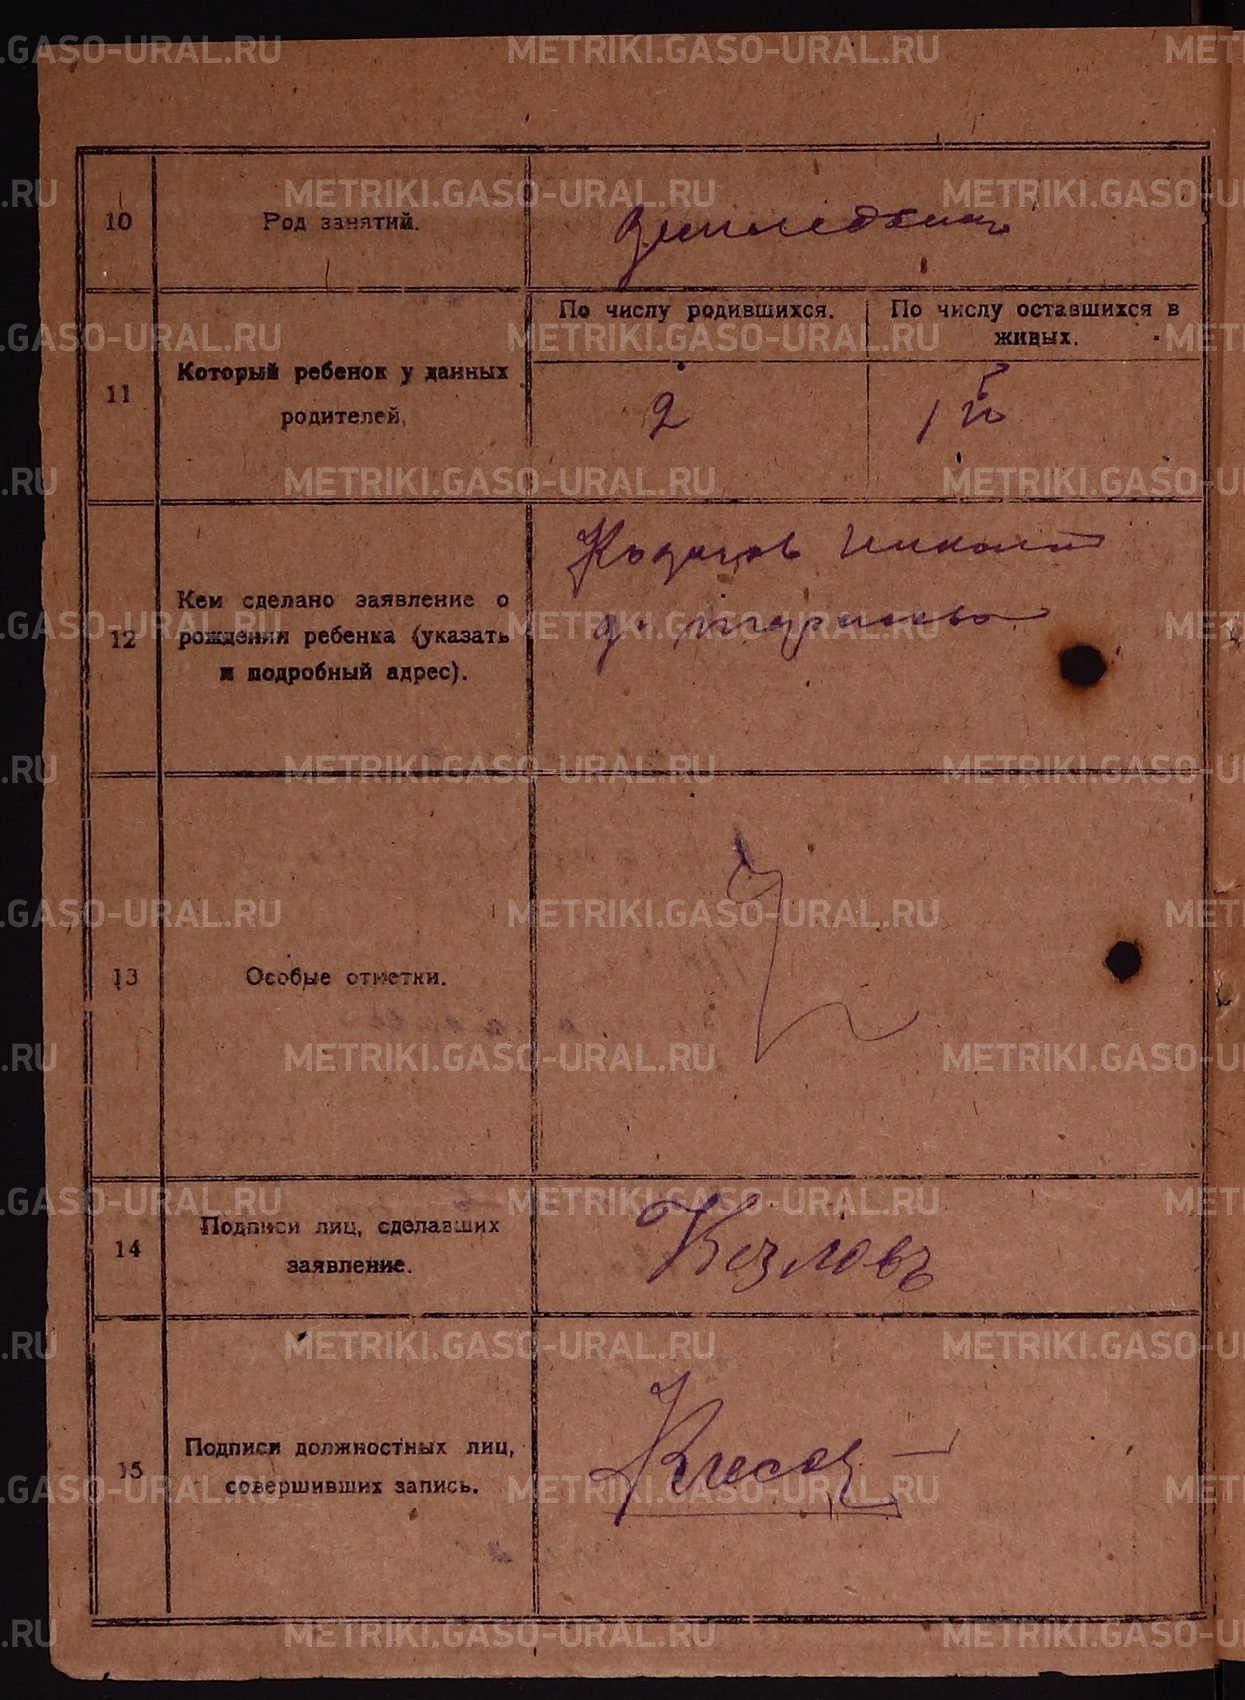 10
Род занятий.
11
Который ребенок у данных
родителей.
По числу родившихся.
По числу оставшихся в
живых.
2
1й
12
Кем сделано заявление о
рождении ребенка (указать
и подробный адрес).
Николай
д.
13
Особые отметки.
14
Подписи лиц, сделавших
заявление.
Козловъ
15
Подписи должностных лиц,
совершивших запись.
METRIKI.GASO-URAL.RU